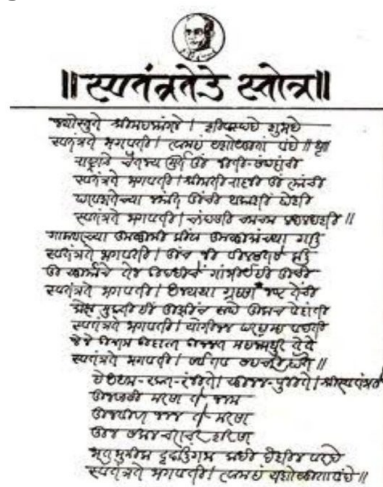 ॥ स्वतंत्रतेचे स्तोत्र ॥
जयोस्तुते श्रीमहन्मंगले । शिवास्पदे शुभदे
स्वतंत्रते भगवति । त्वामहं यशोयुतां वंदे ॥ धृ॥
राष्ट्राचे चैतन्य मूर्त तूं नीति-संपदांची
स्वतंत्रते भगवति । श्रीमती राज्ञी तूं त्यांची
परवशतेच्या नभांत तूंची आकाशी होशी
स्वतंत्रते भगवति । चांदणी चमचम लखलखशी ॥
गालावरच्या कुसुमी किंवा कुसुमांच्या गाली
स्वतंत्रते भगवति । तूंच जी विलसतसे लाली
तूं सूर्याचे तेज उदधिचे गांभीर्यहि तूंची
स्वतंत्रते भगवति । अन्यथा ग्रहण नष्ट तेंची
मोक्ष मुक्ति ही तुझींच रूपें तुलाच वेदांती
स्वतंत्रते भगवति । योगिजन परब्रह्म वदती
जे जे उत्तम उदात्त उन्नत महन्मधुर तें तें
स्वतंत्रते भगवति । सर्व तव सहचारी होते ॥
हे अधम-रक्त-रंजिते । सुजन-पूजिते । श्रीस्वतंत्रते
तुजसाठी मरण तें जनन
तुजवीण जनन तें मरण
तुज सकलचराचर शरण
स्वतंत्रते भगवति । त्वामहं यशोयुतां वंदे ॥